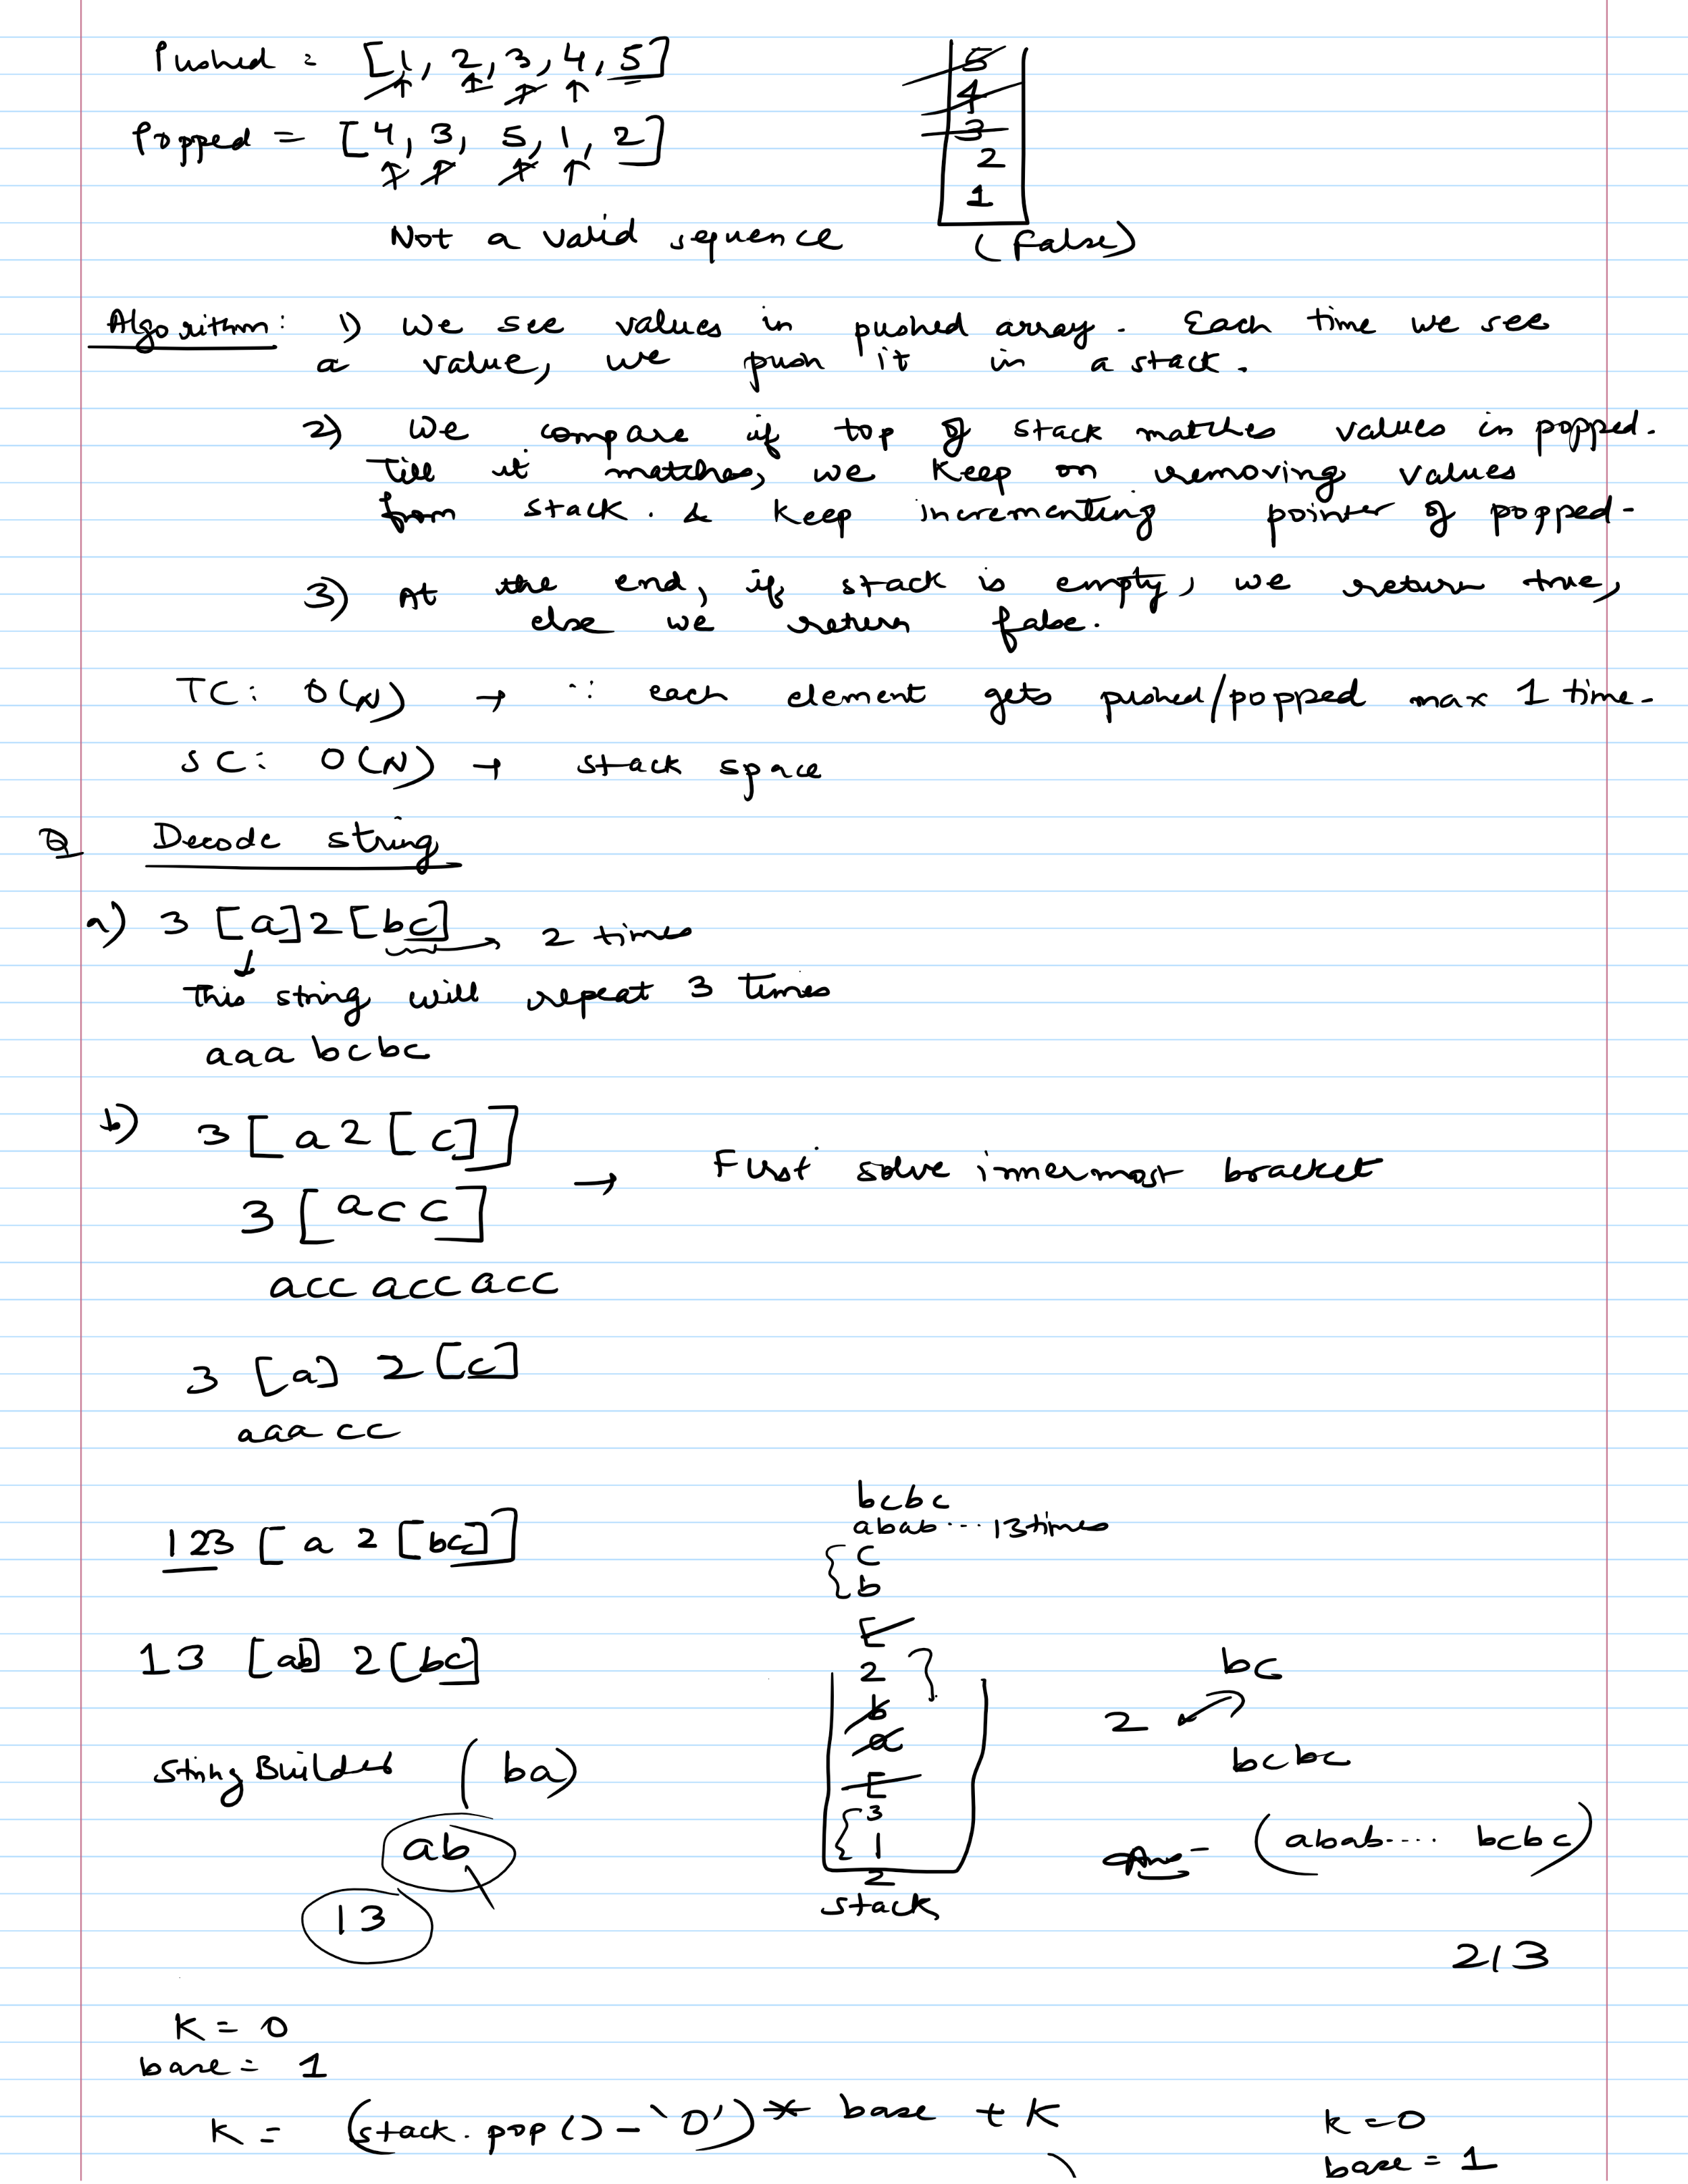 Pushed = [1, 2, 3, 4, 5]
Popped = [4, 3, 5, 1, 2]
5
4
3
2
1
Not a valid sequence (False)
Algorithm: 1) We see values in pushed array. Each time we see
a value, we push it in a stack.
2) We compare if top of stack matches values in popped.
Till it matches, we keep on removing values
from stack. & keep incrementing pointer of popped.
3) At the end, if stack is empty, we return true,
else we return false.
TC: O(N) → ∵ each element gets pushed/popped max 1 time.
SC: O(N) → stack space
Q Decode string
a) 3 [a] 2 [bc] → 2 times
↓
This string will repeat 3 times
aaa bcbc
b) 3 [a 2 [c]]
3 [acc] → First solve innermost bracket
acc acc acc
3 [a] 2 [c]
aaa cc
123 [a 2 [bc]]
13 [ab] 2 [bc]
StringBuilder (ba)
ab
13
bcbc
abab ... 13 times
c
b
[
2
b
a
[
3
1
2
stack
bc
2
bcbc
Ans - (abab.... bcbc)
213
K = 0
base = 1
K = (stack.pop() - '0') * base + K
K = 0
base = 1